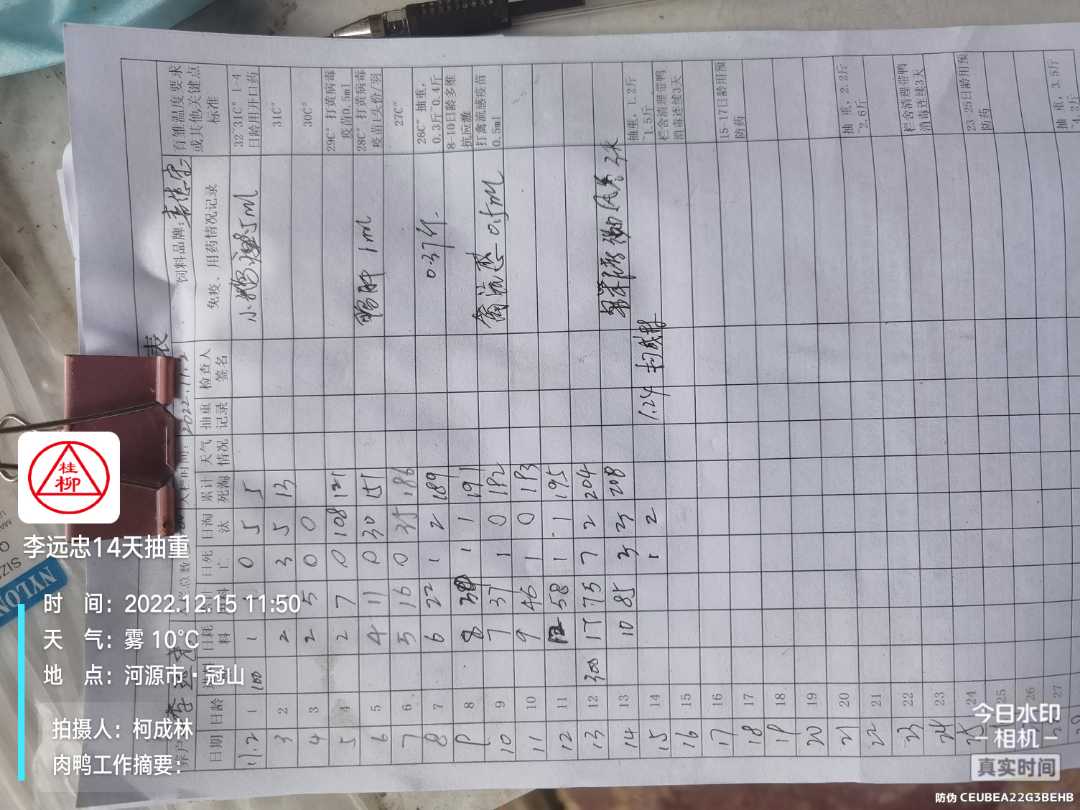 表
李远忠 总数 2022.11.2 饲料品牌:
日期 日龄 日耗料 日死亡 日淘汰 累计死淘 天气情况 抽重记录 检查人签名 免疫、用药情况记录 育雏温度要求或其他关键点标准
11.2 1 100 1 0 5 5 5ml 32~31C° 1-4日龄用开口药
3 2 2 3 5 13 31C°
4 3 2 5 0 0 30C°
5 4 2 7 0 108 121 29C° 打黄病毒疫苗0.5ml
6 5 4 11 0 30 151 鸭肝 1ml 28C° 打黄病毒疫苗1头份/羽
7 6 5 16 0 35 186 27C°
8 7 6 22 1 2 189 0.37斤 28C° 抽重,0.3斤 0.4斤
9 8 8 1 1 191 8-10日龄多维抗应激
10 9 7 37 1 0 192 禽流感 0.5ml 打禽流感疫苗0.5ml
11 10 9 46 1 0 193
12 11 12 58 1 1 195
13 12 300 17 75 7 2 204
14 13 10 85 3 208 抽重,1.2斤~1.5斤
15 14 1 2 1.24 柯成林 栏含清理带鸭消毒连续3天
16 15
17 16 15-17日龄用预防药
18 17
19 18
20 19
21 20 抽重,2.2斤~2.6斤
22 21
23 22 栏含清理带鸭消毒连续3天
24 23
25 24 23-25日龄用预防药
25
26
27 抽重,3.5斤~4.2斤
NYLON
桂柳
李远忠14天抽重
时 间:2022.12.15 11:50
天 气:雾 10℃
地 点:河源市·冠山
拍摄人:柯成林
肉鸭工作摘要:
今日水印
相机
真实时间
防伪 CEUBEA22G3BEHB